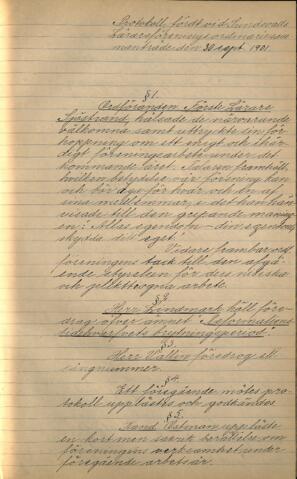 Protokoll, fördt vid Sundsvalls
Lärareförenings ordinarie sam
manträde den 30 sept. 1901.
§ 1.
Ordföranden Förste Lärare
Sjöstrand, hälsade de närvarande
välkomna samt uttryckte sin för
hoppning om ett enigt och ihär
digt föreningsarbete under det
kommande året. Talaren framhöll
hvilken betydelse en förening kan
och bör äga för hvar och en af
sina medlemmar, i det han hän
visade till den gripande manin
gen: "Allas egendom – din egendom,
skydda ditt eget."
Vidare frambar ord.
föreningens tack till den afgå
ende styrelsen för dess nitiska
och plikttrogna arbete.
§ 2.
Herr Lindmark höll före
drag öfver ämnet: "Reformations
tidehvarfvets fredningsperiod."
§ 3.
Herr Wallin föredrog ett
sångnummer.
§ 4.
Ett föregående mötes pro
tokoll upplästes och godkändes.
§ 5.
Kand. Östman uppläste
en kort men saklig berättelse om
föreningens verksamhet under
föregående arbetsår.